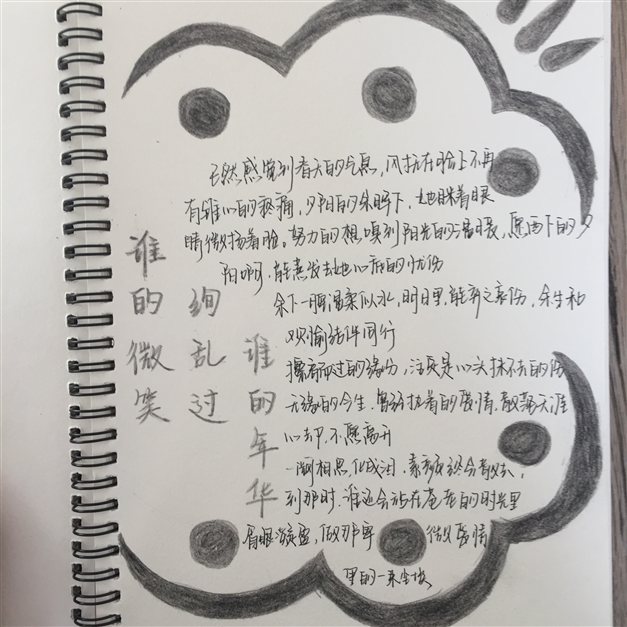 谁的微笑
绚乱过
谁的年华
已然感觉到春天的气息,风抚在脸上不再
有锥心的疼痛,夕阳的余晖下,她眯着眼
睛微扬着脸。努力的想嗅到阳光的温暖,愿西下的夕
阳啊,能蒸发去她心底的忧伤
余下一腔温柔似水,明日里,能弃之哀伤,余生和
欢愉结伴同行
擦肩而过的缘分,注定是心头抹不去的伤
无缘的今生,曾经执着的爱情,散落天涯
心却不愿离开
一阕相思,化成泪,素颜终会散去,
到那时,谁还会站在苍茫的时光里
眉眼盈盈,做那卑微爱情
里的一朵尘埃